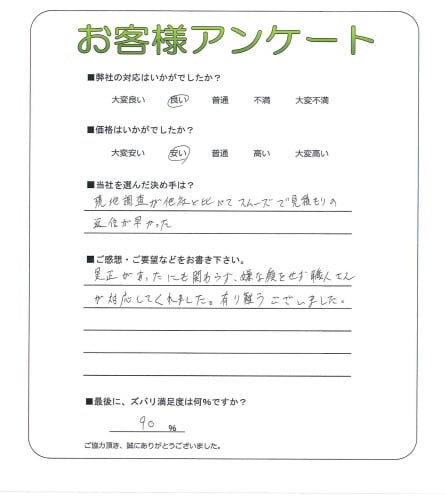 お客様アンケート
■弊社の対応はいかがでしたか？
大変良い 良い 普通 不満 大変不満
■価格はいかがでしたか？
大変安い 安い 普通 高い 大変高い
■当社を選んだ決め手は？
現地調査が他社と比べてスムーズで見積もりの
返信が早かった
■ご感想・ご要望などをお書き下さい。
是正があったにも関わらず、嫌な顔をせず職人さん
が対応してくれました。有り難うございました。
■最後に、ズバリ満足度は何%ですか？
90 %
ご協力頂き、誠にありがとうございました。